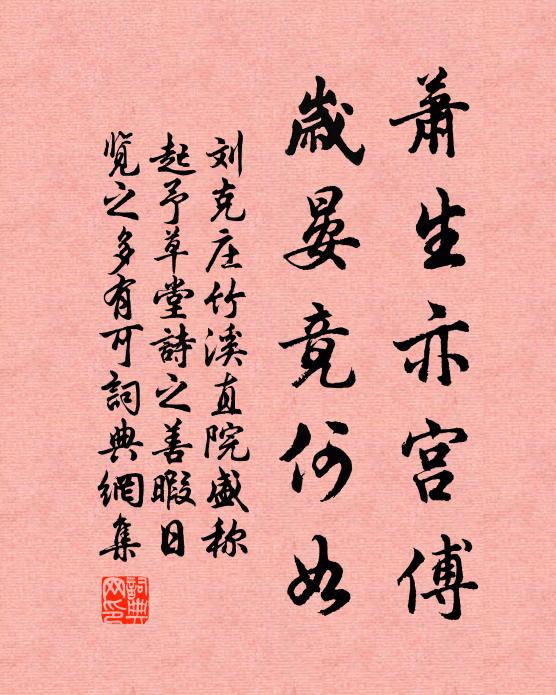 萧生亦宫傅
歲晏竟何如
刘克庄竹溪直院盛称
起予草堂詩之善暇日
览之多有可詞典網集
詞典网印